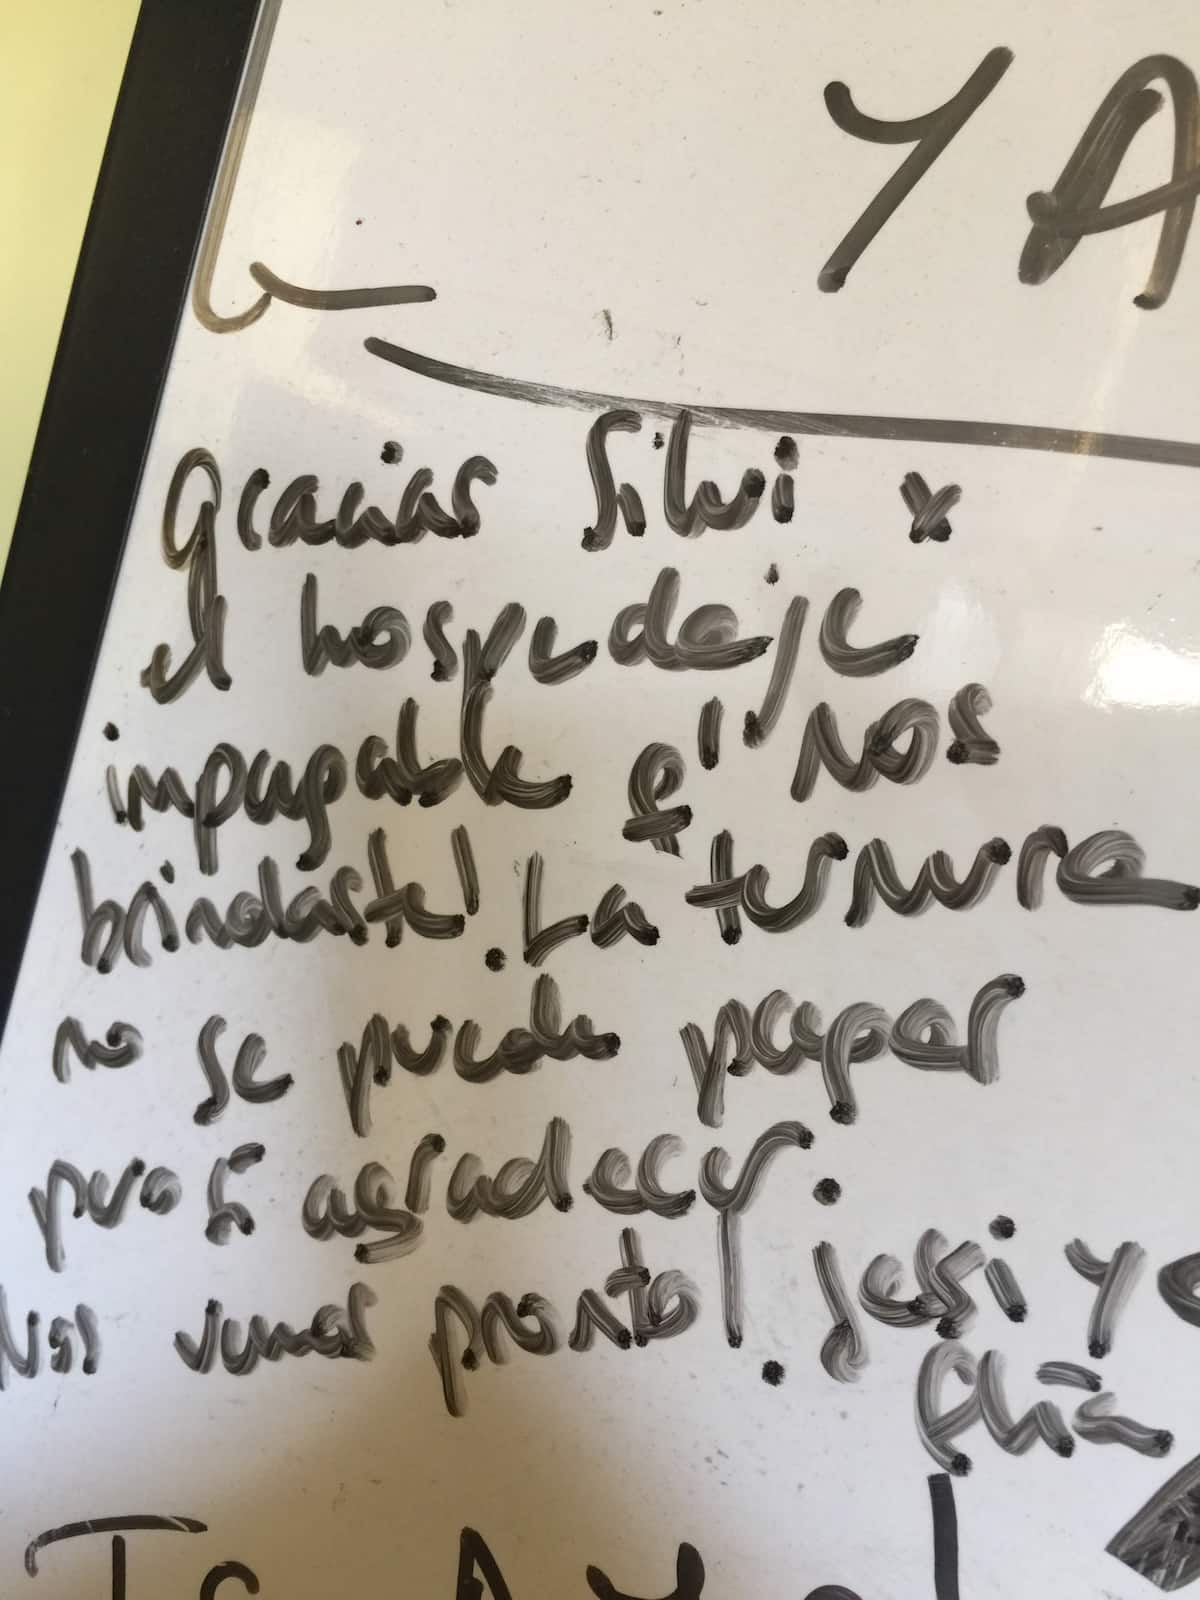 YA
gracias Silvi x
el hospedaje
impagable q' nos
brindaste!. La ternura
no se puede pagar
pero si agradecer.
Nos vemos pronto!. jessi y
flia